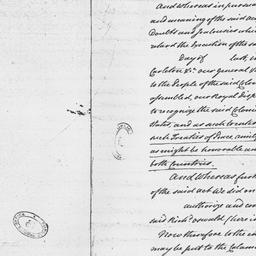 And Whereas in pursuan
and meaning of the said Act
Doubts and Jealousies whi
retard the Execution of the sa
Day of last, in
Carleton Kt. our general &
to the People of the said Colon
assembled, our Royal Disp
to recognize the said Coloni
States, and as such to enter
such Treaties of Peace, amity
as might be honorable an
both Countries.
And Whereas furth
of the said Act We did on
authorize and em
said Richd. Oswald (here i
Now therefore to the en
may be put to the Calami